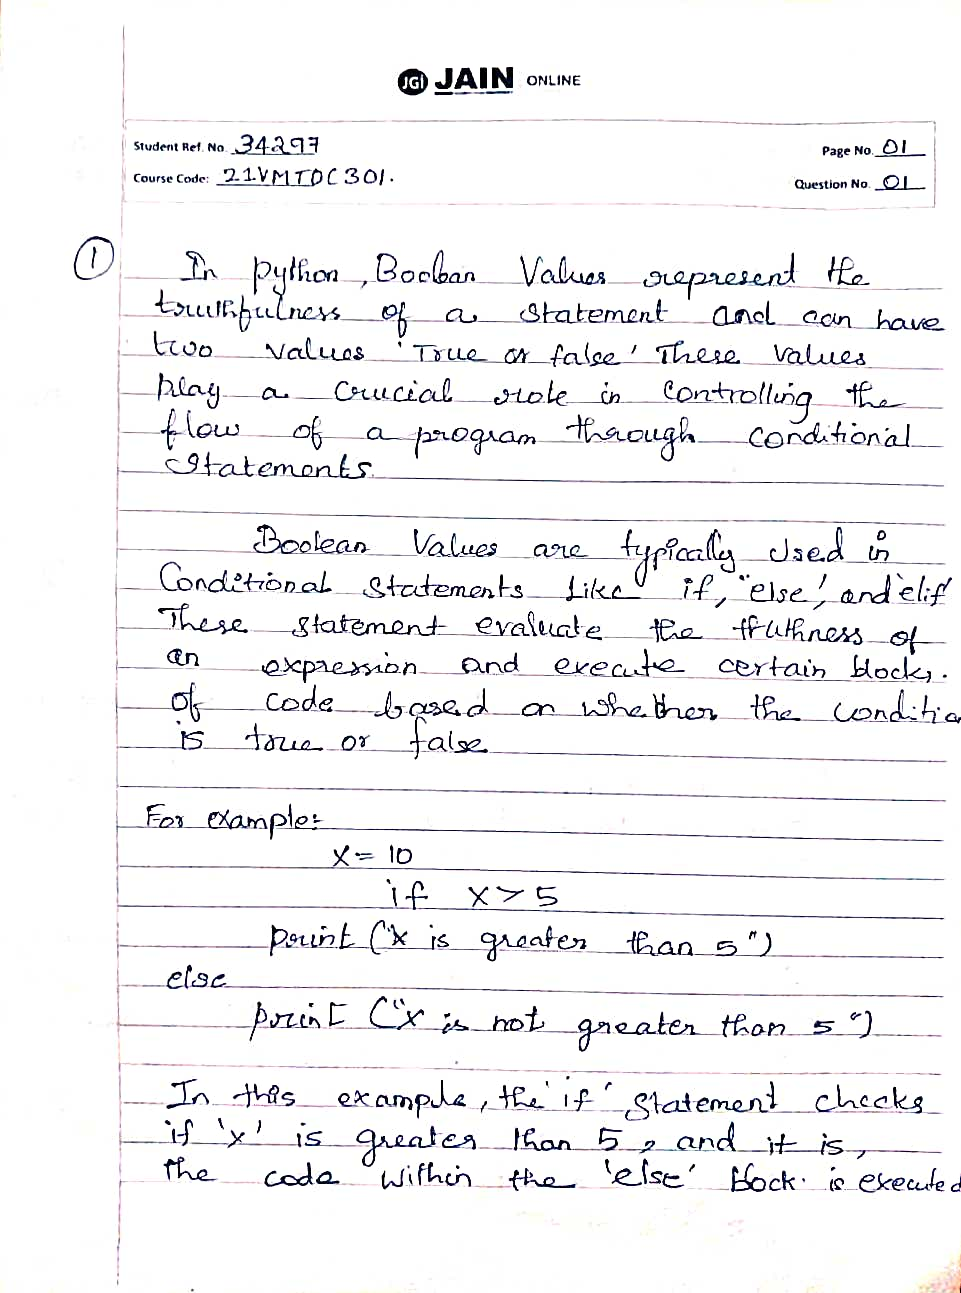 JGI JAIN ONLINE
Student Ref. No. 34297
Page No. 01
Course Code: 21VMTDC301.
Question No. 01
① In python, Boolean Values represent the
truthfulness of a statement and can have
two values 'True or false' These values
play a crucial role in controlling the
flow of a program through conditional
statements
Boolean Values are typically used in
Conditional statements like if, "else', and 'elif
These statement evaluate the truthness of
an expression and execute certain blocks.
of code based on whether the conditio
is true or false
For example:
x = 10
if x > 5
print ("x is greater than 5")
else
print ("x is not greater than 5")
In this example, the 'if' statement checks
if 'x' is greater than 5, and it is,
the code within the 'else' block. is executed